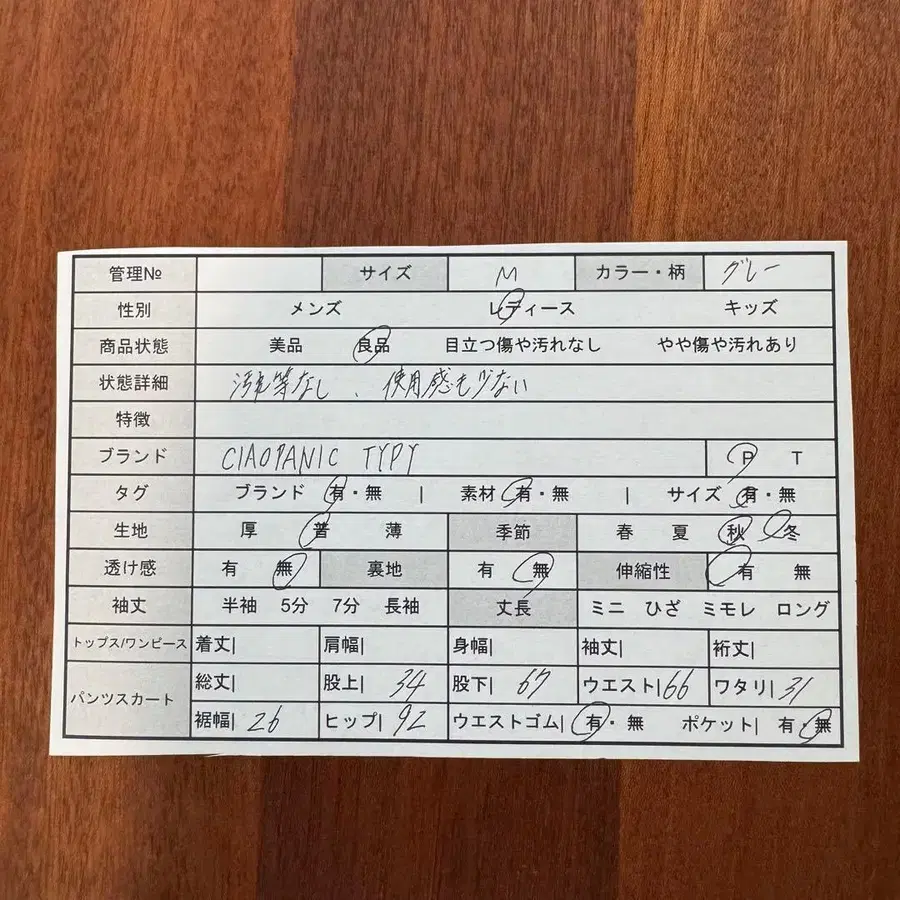 管理№ サイズ M カラー・柄 グレー
性別 メンズ レディース キッズ
商品状態 美品 良品 目立つ傷や汚れなし やや傷や汚れあり
状態詳細 汚れ等なし、使用感も少ない
特徴
ブランド CIAOPANIC TYPY P T
タグ ブランド 有・無 | 素材 有・無 | サイズ 有・無
生地 厚 普 薄 季節 春 夏 秋 冬
透け感 有 無 裏地 有 無 伸縮性 有 無
袖丈 半袖 5分 7分 長袖 丈長 ミニ ひざ ミモレ ロング
トップス/ワンピース 着丈| 肩幅| 身幅| 袖丈| 裄丈|
パンツスカート 総丈| 股上| 34 股下| 67 ウエスト| 66 ワタリ| 31
裾幅| 26 ヒップ| 92 ウエストゴム| 有・無 ポケット| 有・無